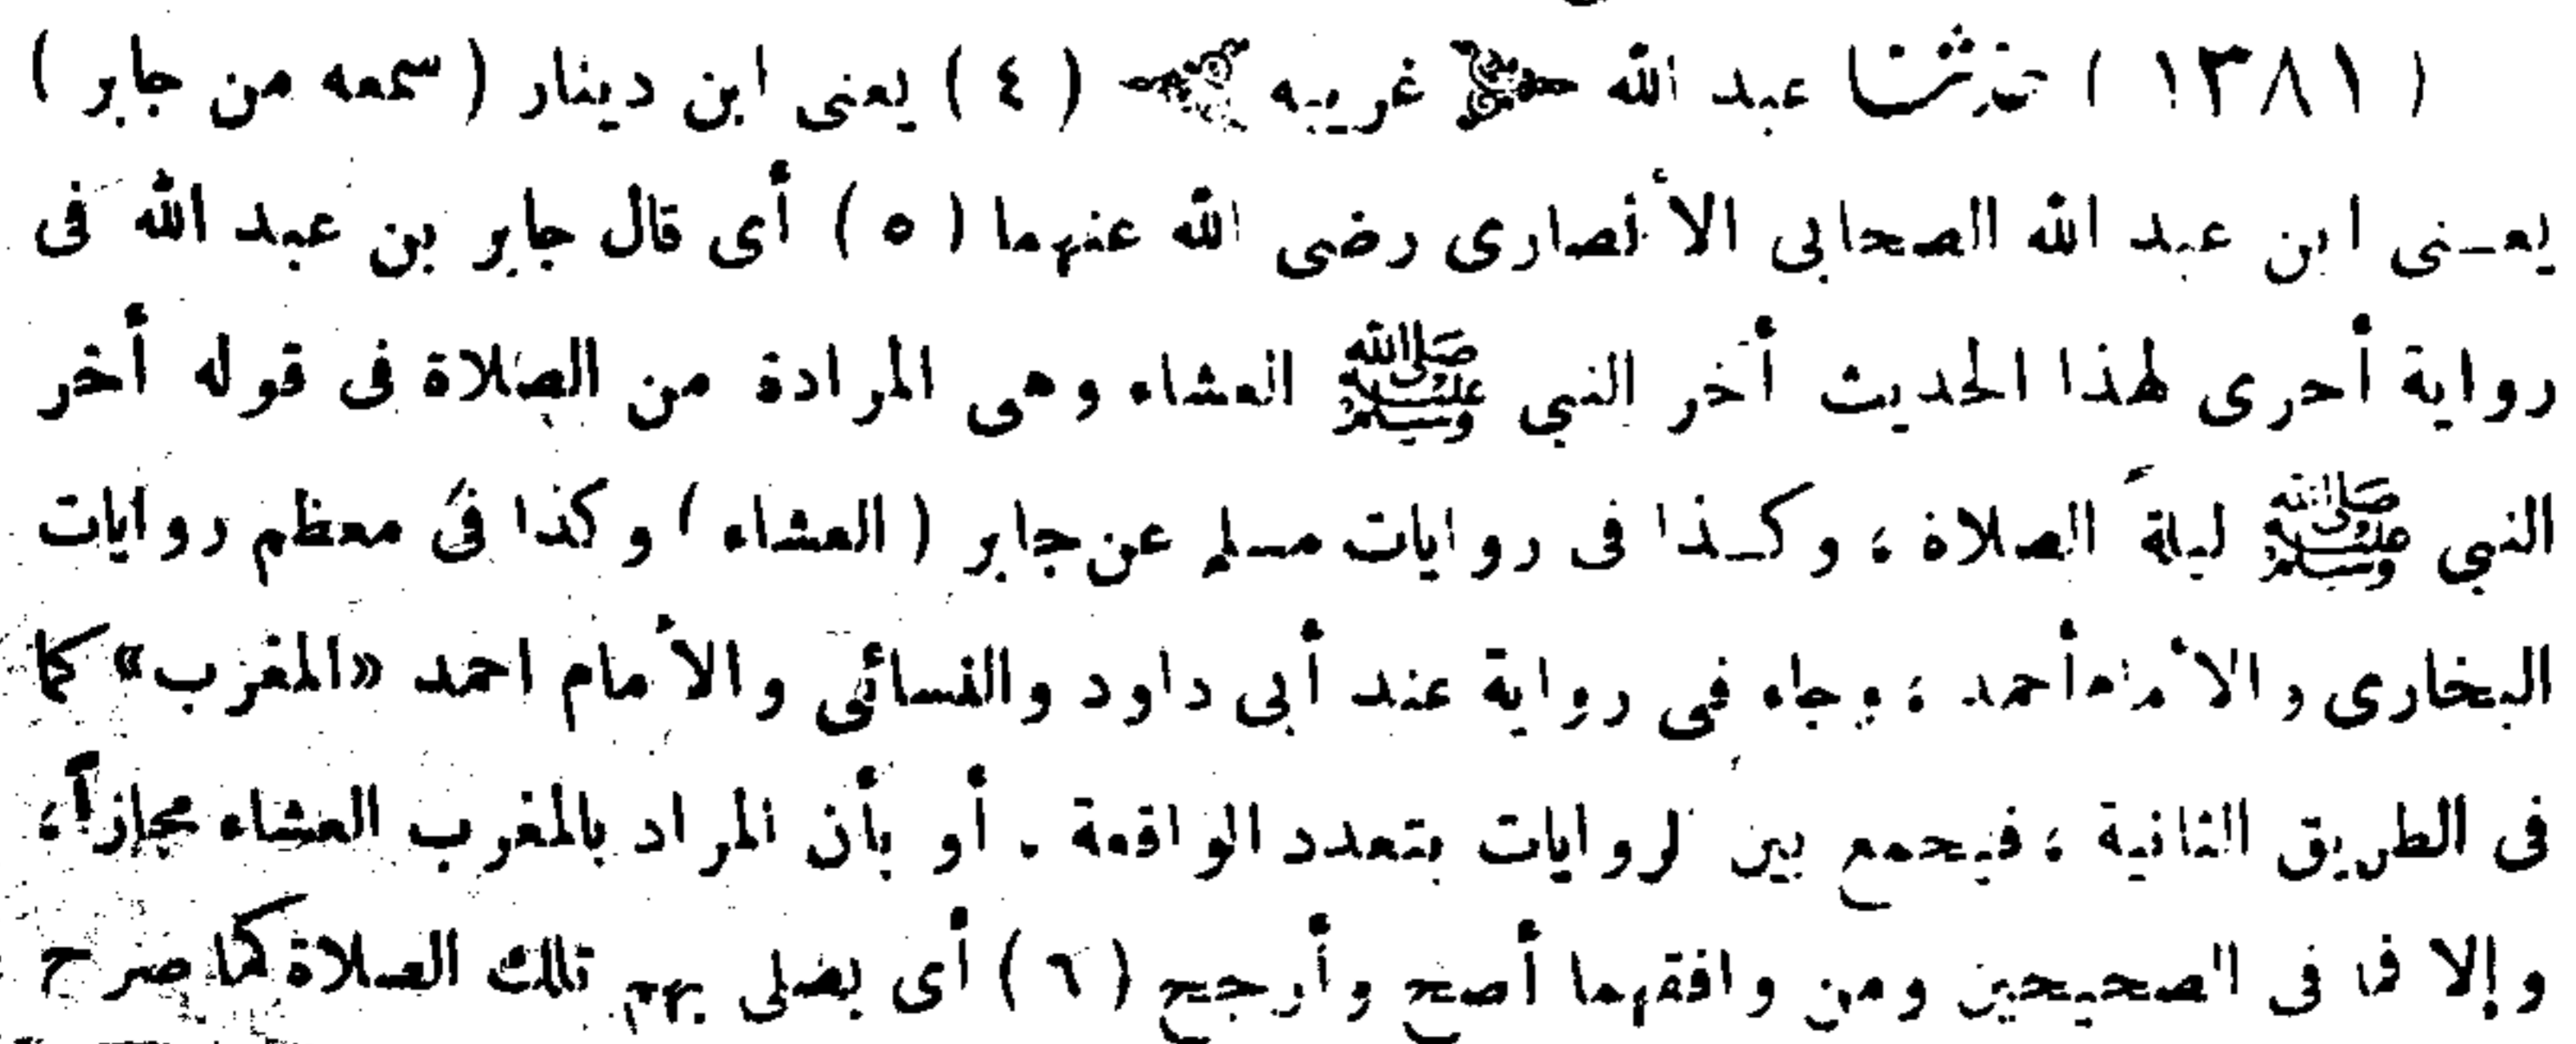 ( ١٣٨١ ) حدثنا عبد الله ﴿ غريبه ﴾ ( ٤ ) يعنى ابن دينار ( سمعه من جابر )
يعـنى ابن عبد الله الصحابى الأنصارى رضى الله عنهما ( ٥ ) أى قال جابر بن عبد الله فى
رواية أحرى لهذا الحديث أخر النبي ﷺ العشاء وهى المرادة من الصلاة فى قوله أخر
النبي ﷺ ليلةً الصلاة ، وكـذا فى روايات مسلم عن جابر ( العشاء ) وكذا فى معظم روايات
البخارى والأمام أحمد ، وجاء فى رواية عند أبى داود والنسائى والأمام احمد «المغرب» كما
فى الطريق الثانية ، فيجمع بين لروايات بتعدد الواقعة . أو بأن المراد بالمغرب العشاء مجازاً ،
وإلا فما فى الصحيحين ومن وافقهما أصح وأرجح ( ٦ ) أى يصلى بهم تلك الصلاة كما صرح